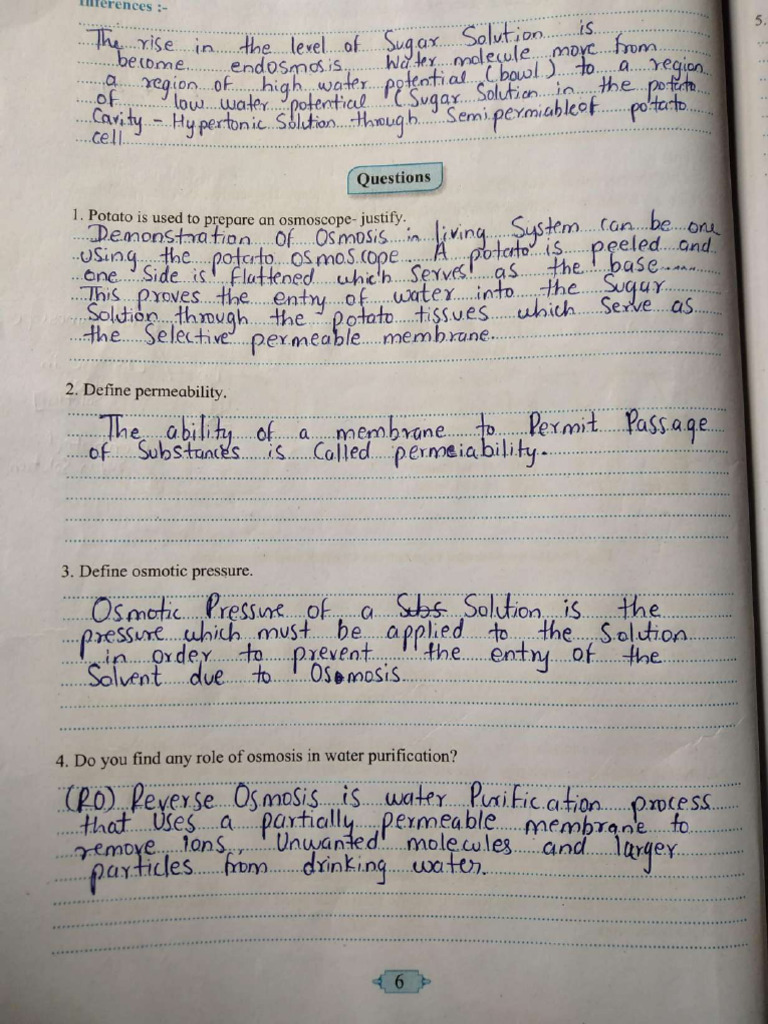 Inferences :-
The rise in the level of Sugar Solution is
become endosmosis Water molecule move from
a region of high water potential (bowl) to a region
of low water potential (Sugar Solution in the potato
Cavity - Hypertonic Solution through Semipermiable of potato
cell
Questions
1. Potato is used to prepare an osmoscope- justify.
Demonstration of Osmosis in living System can be one
using the potato osmoscope. A potato is peeled and
one Side is flattened which Serves as the base
This proves the entry of water into the Sugar
Solution through the potato tissues which Serve as
the Selective permeable membrane.
2. Define permeability.
The ability of a membrane to Permit Passage
of Substances is Called permeiability.
3. Define osmotic pressure.
Osmotic Pressure of a Subs Solution is the
pressure which must be applied to the Solution
in order to prevent the entry of the
Solvent due to Osmosis
4. Do you find any role of osmosis in water purification?
(RO) Reverse Osmosis is water Purification process
that Uses a partially permeable membrane to
remove ions, Unwanted molecules and larger
particles from drinking water.
6
5.